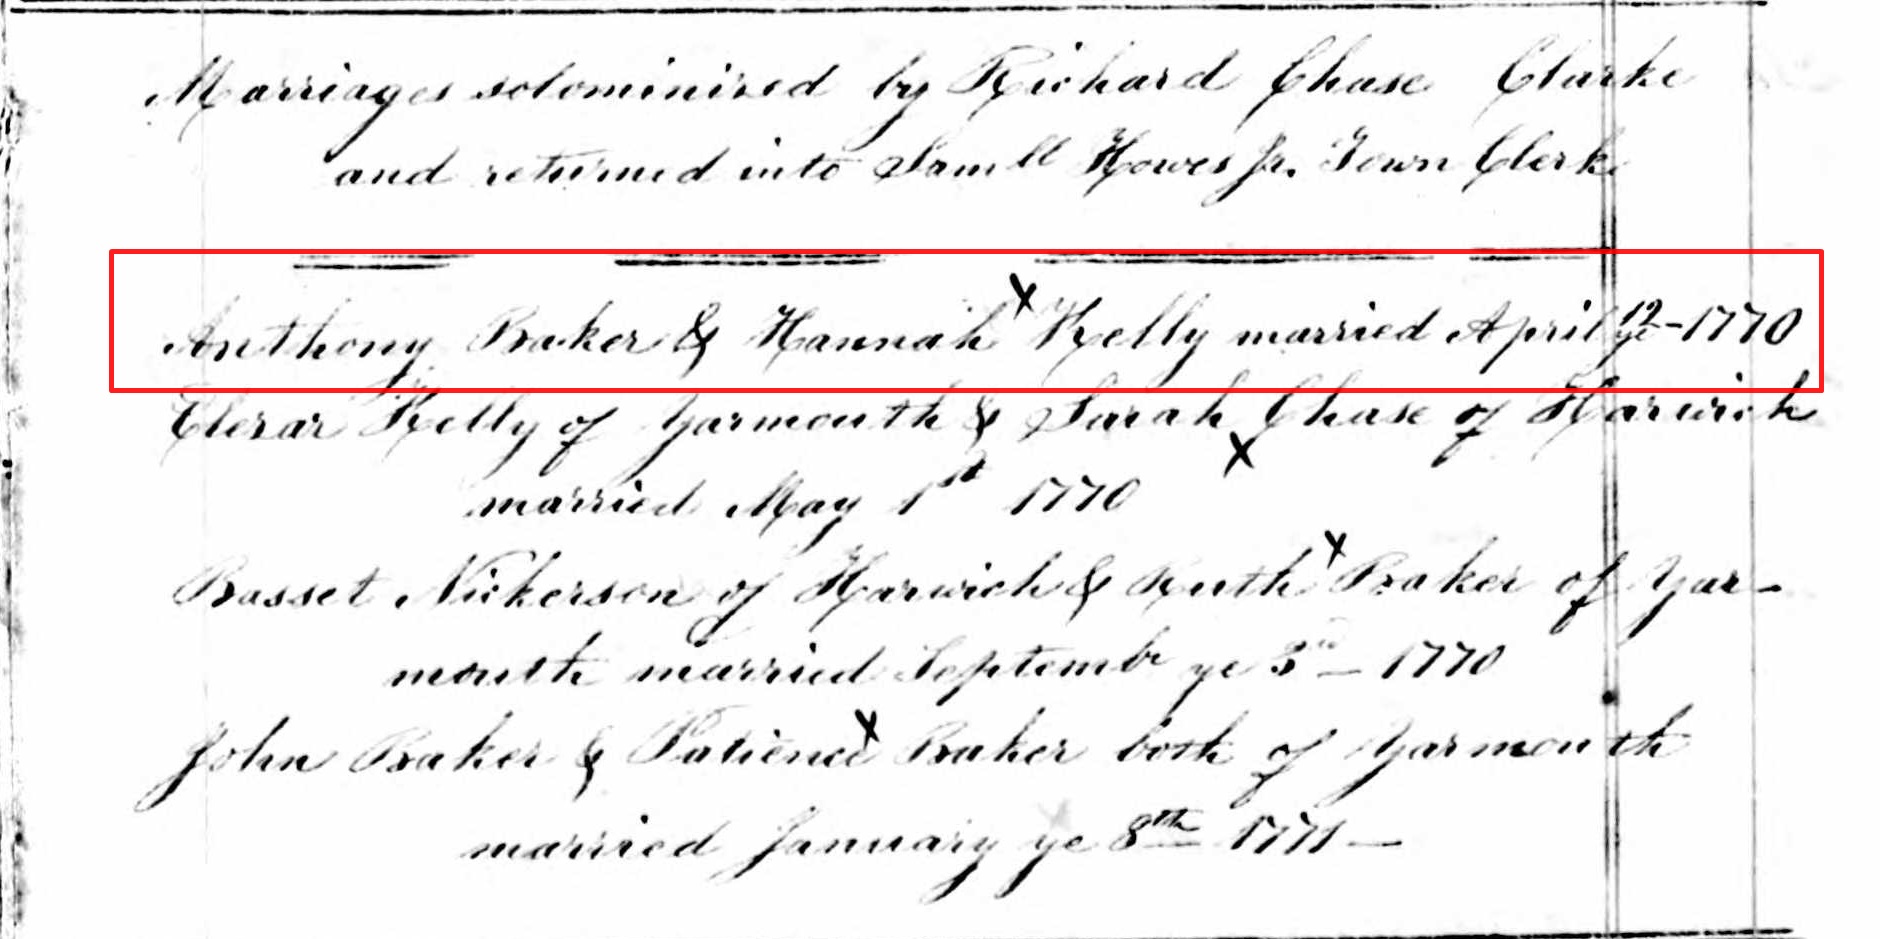 Marriages solominized by Richard Chase Clarke
and returned into Samll Howes Jr. Town Clerk
Anthony Baker & Hannah x Kelly married April ye 12 - 1770
Elezar Kelly of Yarmouth & Sarah x Chase of Harwich
married May 1st 1770
Basset Nickerson of Harwich & Ruth x Baker of Yar-
mouth married Septembr ye 3rd - 1770
John Baker & Patience x Baker both of Yarmouth
married January ye 8th 1771 -